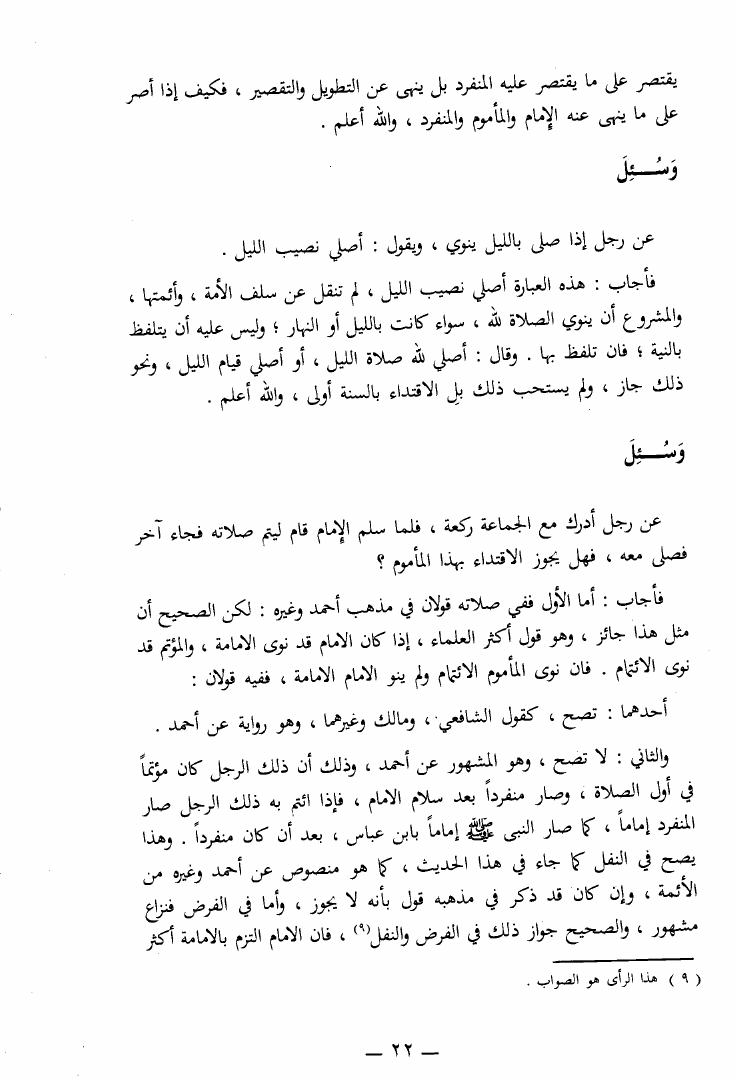 يقتصر على ما يقتصر عليه المنفرد بل ينهى عن التطويل والتقصير ، فكيف إذا أصر
على ما ينهى عنه الإمام والمأموم والمنفرد ، والله أعلم .
وَسُـــئِلَ
عن رجل إذا صلى بالليل ينوي ، ويقول : أصلي نصيب الليل .
فأجاب : هذه العبارة أصلي نصيب الليل ، لم تنقل عن سلف الأمة ، وأئمتها ،
والمشروع أن ينوي الصلاة لله ، سواء كانت بالليل أو النهار ؛ وليس عليه أن يتلفظ
بالنية ؛ فان تلفظ بها . وقال : أصلي لله صلاة الليل ، أو أصلي قيام الليل ، ونحو
ذلك جاز ، ولم يستحب ذلك بلِ الاقتداء بالسنة أولى ، والله أعلم .
وَسُـــئِلَ
عن رجل أدرك مع الجماعة ركعة ، فلما سلم الإمام قام ليتم صلاته فجاء آخر
فصلى معه ، فهل يجوز الاقتداء بهذا المأموم ؟
فأجاب : أما الأول ففي صلاته قولان في مذهب أحمد وغيره : لكن الصحيح أن
مثل هذا جائز ، وهو قول أكثر العلماء ، إذا كان الامام قد نوى الامامة ، والمؤتم قد
نوى الائتمام . فان نوى المأموم الائتمام ولم ينو الامام الامامة ، ففيه قولان :
أحدهما : تصح ، كقول الشافعي ، ومالك وغيرهما ، وهو رواية عن أحمد .
والثاني : لا تصح ، وهو المشهور عن أحمد ، وذلك أن ذلك الرجل كان مؤتماً
في أول الصلاة ، وصار منفرداً بعد سلام الامام ، فإذا ائتم به ذلك الرجل صار
المنفرد إماماً ، كما صار النبى ﷺ إماماً بابن عباس ، بعد أن كان منفرداً . وهذا
يصح في النفل كما جاء في هذا الحديث ، كما هو منصوص عن أحمد وغيره من
الأئمة ، وإن كان قد ذكر في مذهبه قول بأنه لا يجوز ، وأما في الفرض فنزاع
مشهور ، والصحيح جواز ذلك في الفرض والنفل(٩) ، فان الامام التزم بالامامة أكثر
( ٩ ) هذا الرأى هو الصواب .
— ٢٢ —